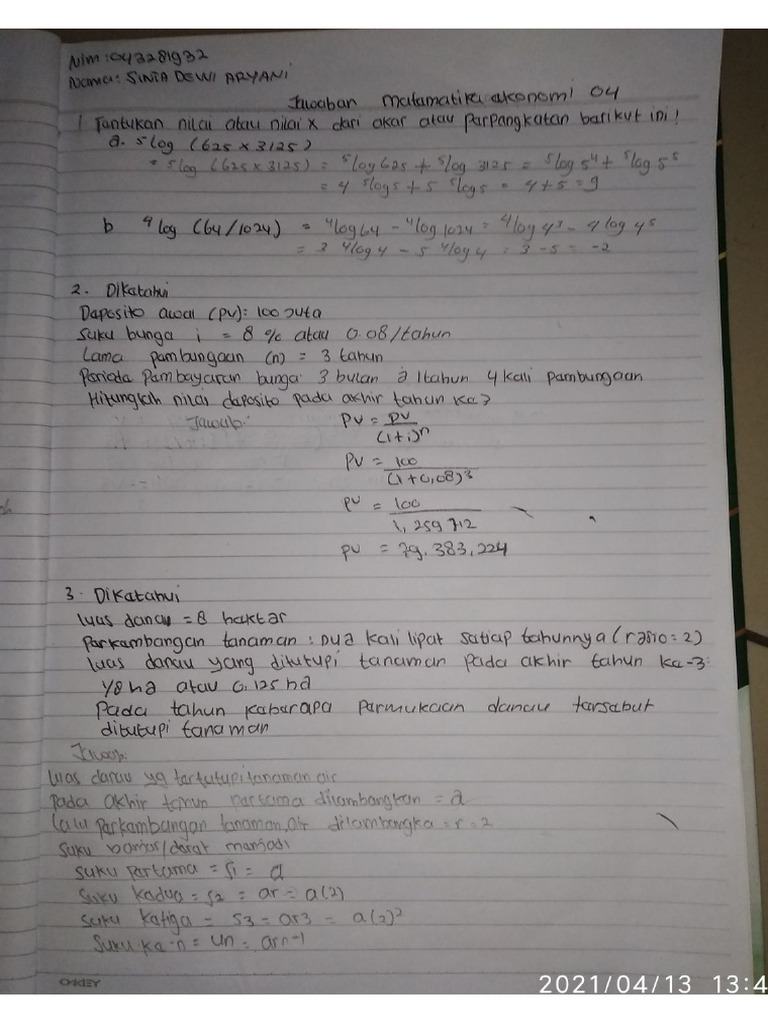 Nim : 043281932
Nama : SINTA DEWI ARYANI
Jawaban Matamatika ekonomi 04
1 Tantukan nilai atau nilai x dari akar atau parpangkatan barikut ini!
a. ⁵log (625 x 3125)
= ⁵log (625 x 3125) = ⁵log 625 + ⁵log 3125 = ⁵log 5⁴ + ⁵log 5⁵
= 4 ⁵log 5 + 5 ⁵log 5 = 4 + 5 = 9
b ⁴log (64/1024) = ⁴log 64 - ⁴log 1024 = ⁴log 4³ - ⁴log 4⁵
= 3 ⁴log 4 - 5 ⁴log 4 = 3 - 5 = -2
2. Dikatahui
Daposito awal (PV) : 100 Juta
Suku bunga i = 8 % atau 0.08/tahun
Lama pambungaan (n) = 3 tahun
Parioda Pambayaran bunga 3 bulan à 1 tahun 4 kali pambungaan
Hitunglah nilai daposito pada akhir tahun ka 3
Jawab: PV = PV / (1+i)ⁿ
PV = 100 / (1+0,08)³
PV = 100 / 1,259712
PV = 79.383,224
3. Dikatahui
luas danau = 8 haktar
Parkambangan tanaman : Dua kali lipat satiap tahunnya (rasio = 2)
luas danau yang ditutupi tanaman pada akhir tahun ka-3:
1/8 ha atau 0.125 ha
Pada tahun kabarapa parmukaan danau tarsabut
ditutupi tanaman
Jawab:
luas danau yg tartutupi tanaman air
pada akhir tahun partama dilambangkan = a
Lalu parkambangan tanaman air dilambangka = r = 2
Suku barisr/darat manjadi
Suku partama = S1 = a
Suku kadua = S2 = ar = a(2)
Suku katiga = S3 = ar3 = a(2)²
Suku ka-n = Un = arn-1
OKEY
2021/04/13 13:4